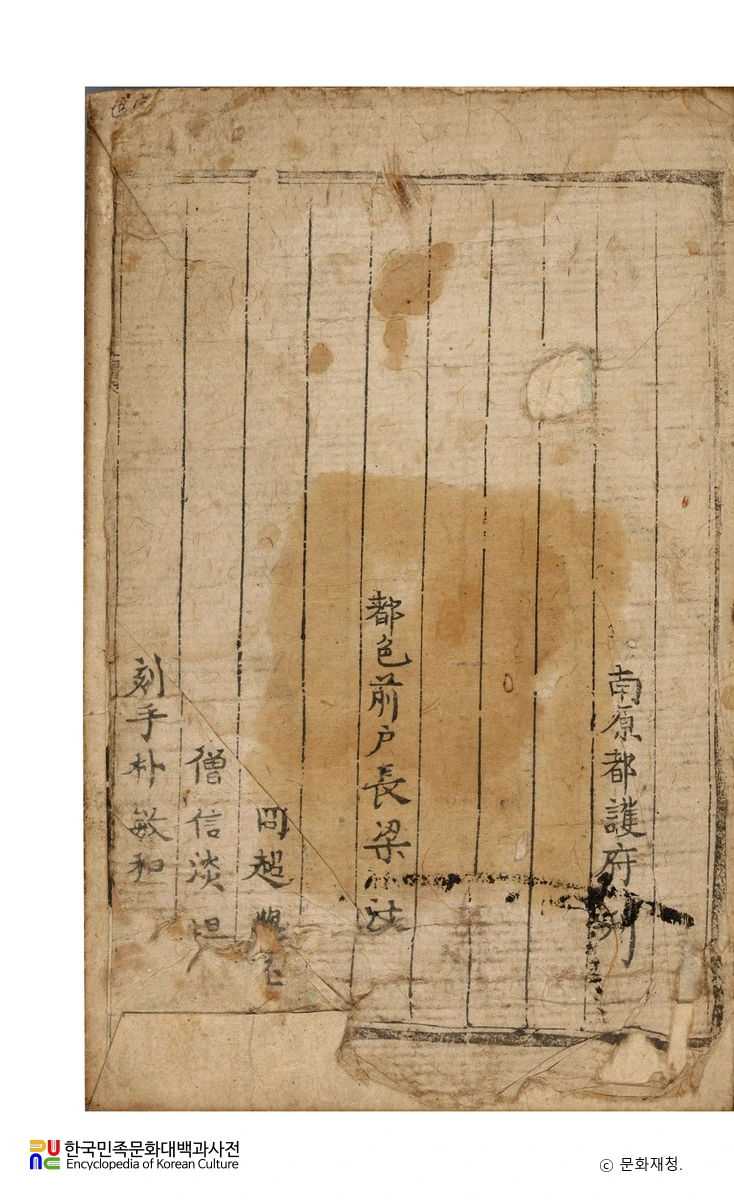 南原都護府刊
都色前戶長梁 法
冏超
僧信淡
刻手朴敏和
한국민족문화대백과사전
Encyclopedia of Korean Culture
ⓒ 문화재청.